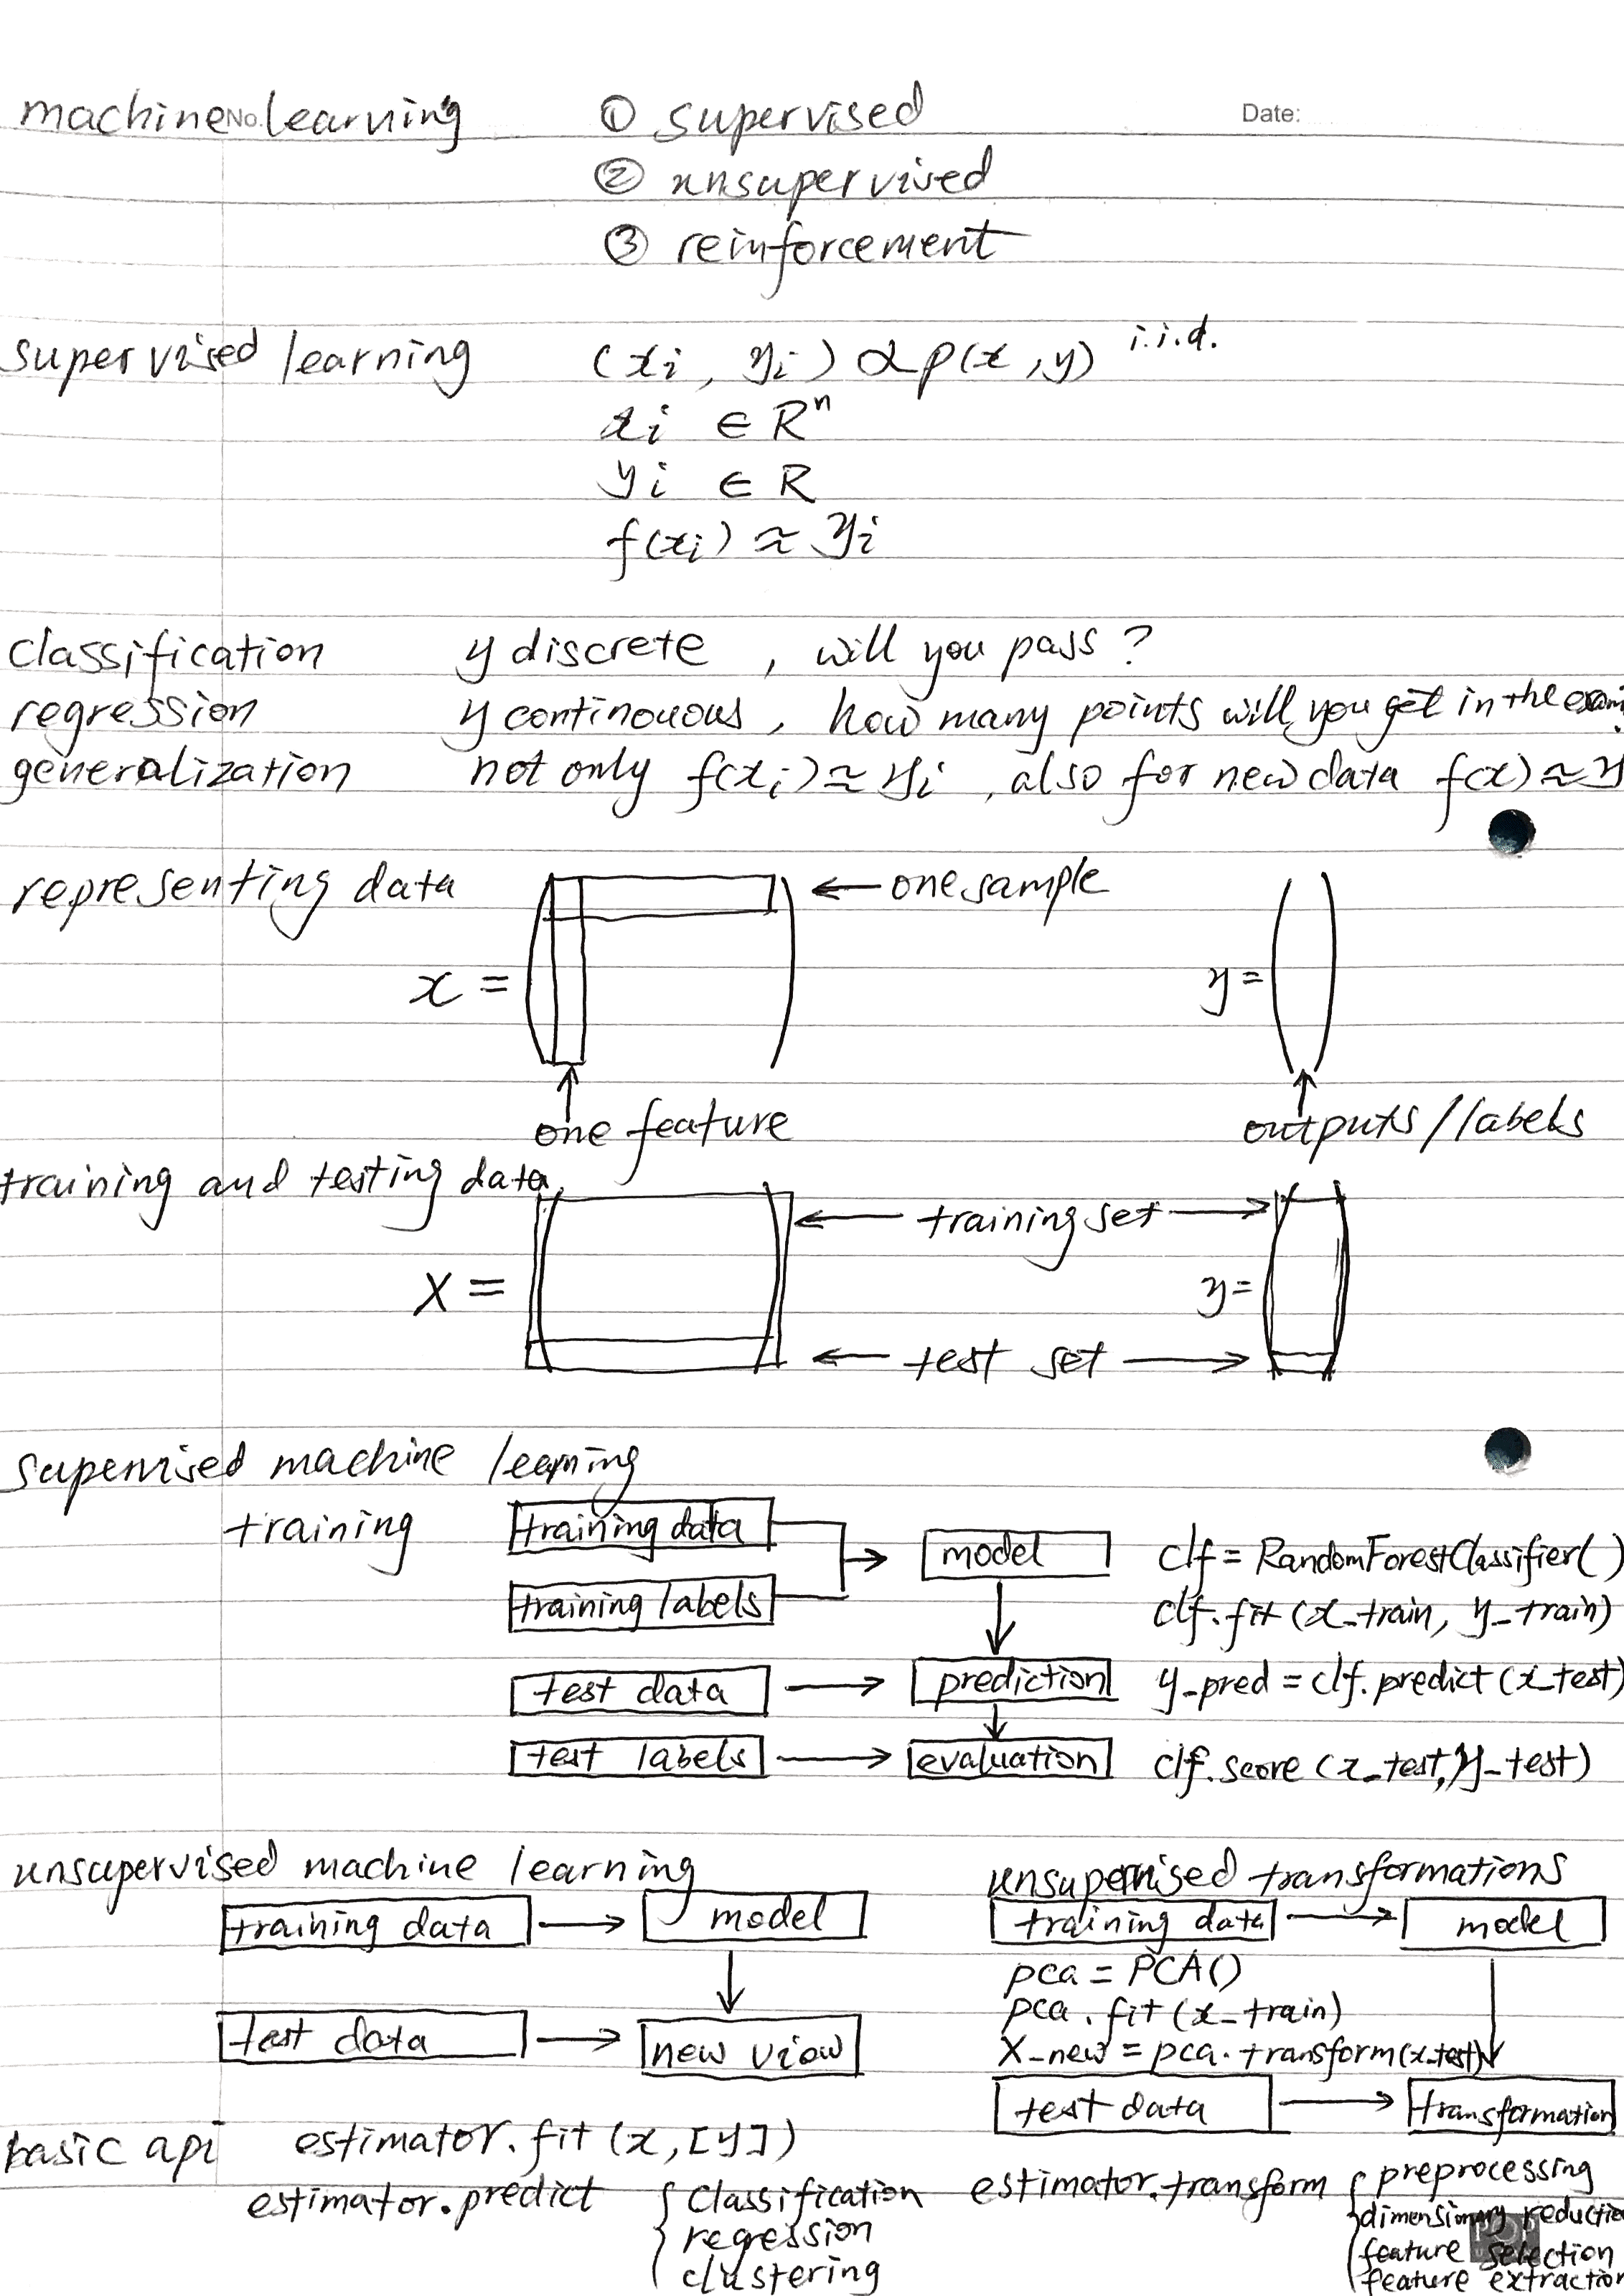 machine learning ① supervised
No. Date:
② unsupervised
③ reinforcement
supervised learning (xi, yi) ∝ p(x, y) i.i.d.
xi ∈ Rⁿ
yi ∈ R
f(xi) ≈ yi
classification y discrete , will you pass ?
regression y continouous , how many points will you get in the exam ?
generalization not only f(xi) ≈ yi , also for new data f(x) ≈ y
representing data ← one sample
x = y =
one feature outputs / labels
training and testing data
← training set →
X = y =
← test set →
supervised machine learning
training training data model clf = RandomForestClassifier()
training labels clf.fit (x_train, y_train)
test data → prediction y_pred = clf.predict (x_test)
test labels → evaluation clf.score (x_test, y_test)
unsupervised machine learning
training data → model
test data → new view
unsupervised transformations
training data → model
pca = PCA()
pca.fit (x_train)
X_new = pca.transform(x_test)
test data → transformation
basic api estimator.fit (x, [y])
estimator.predict { classification
regression
clustering
estimator.transform { preprocessing
dimensionary reduction
feature selection
feature extraction